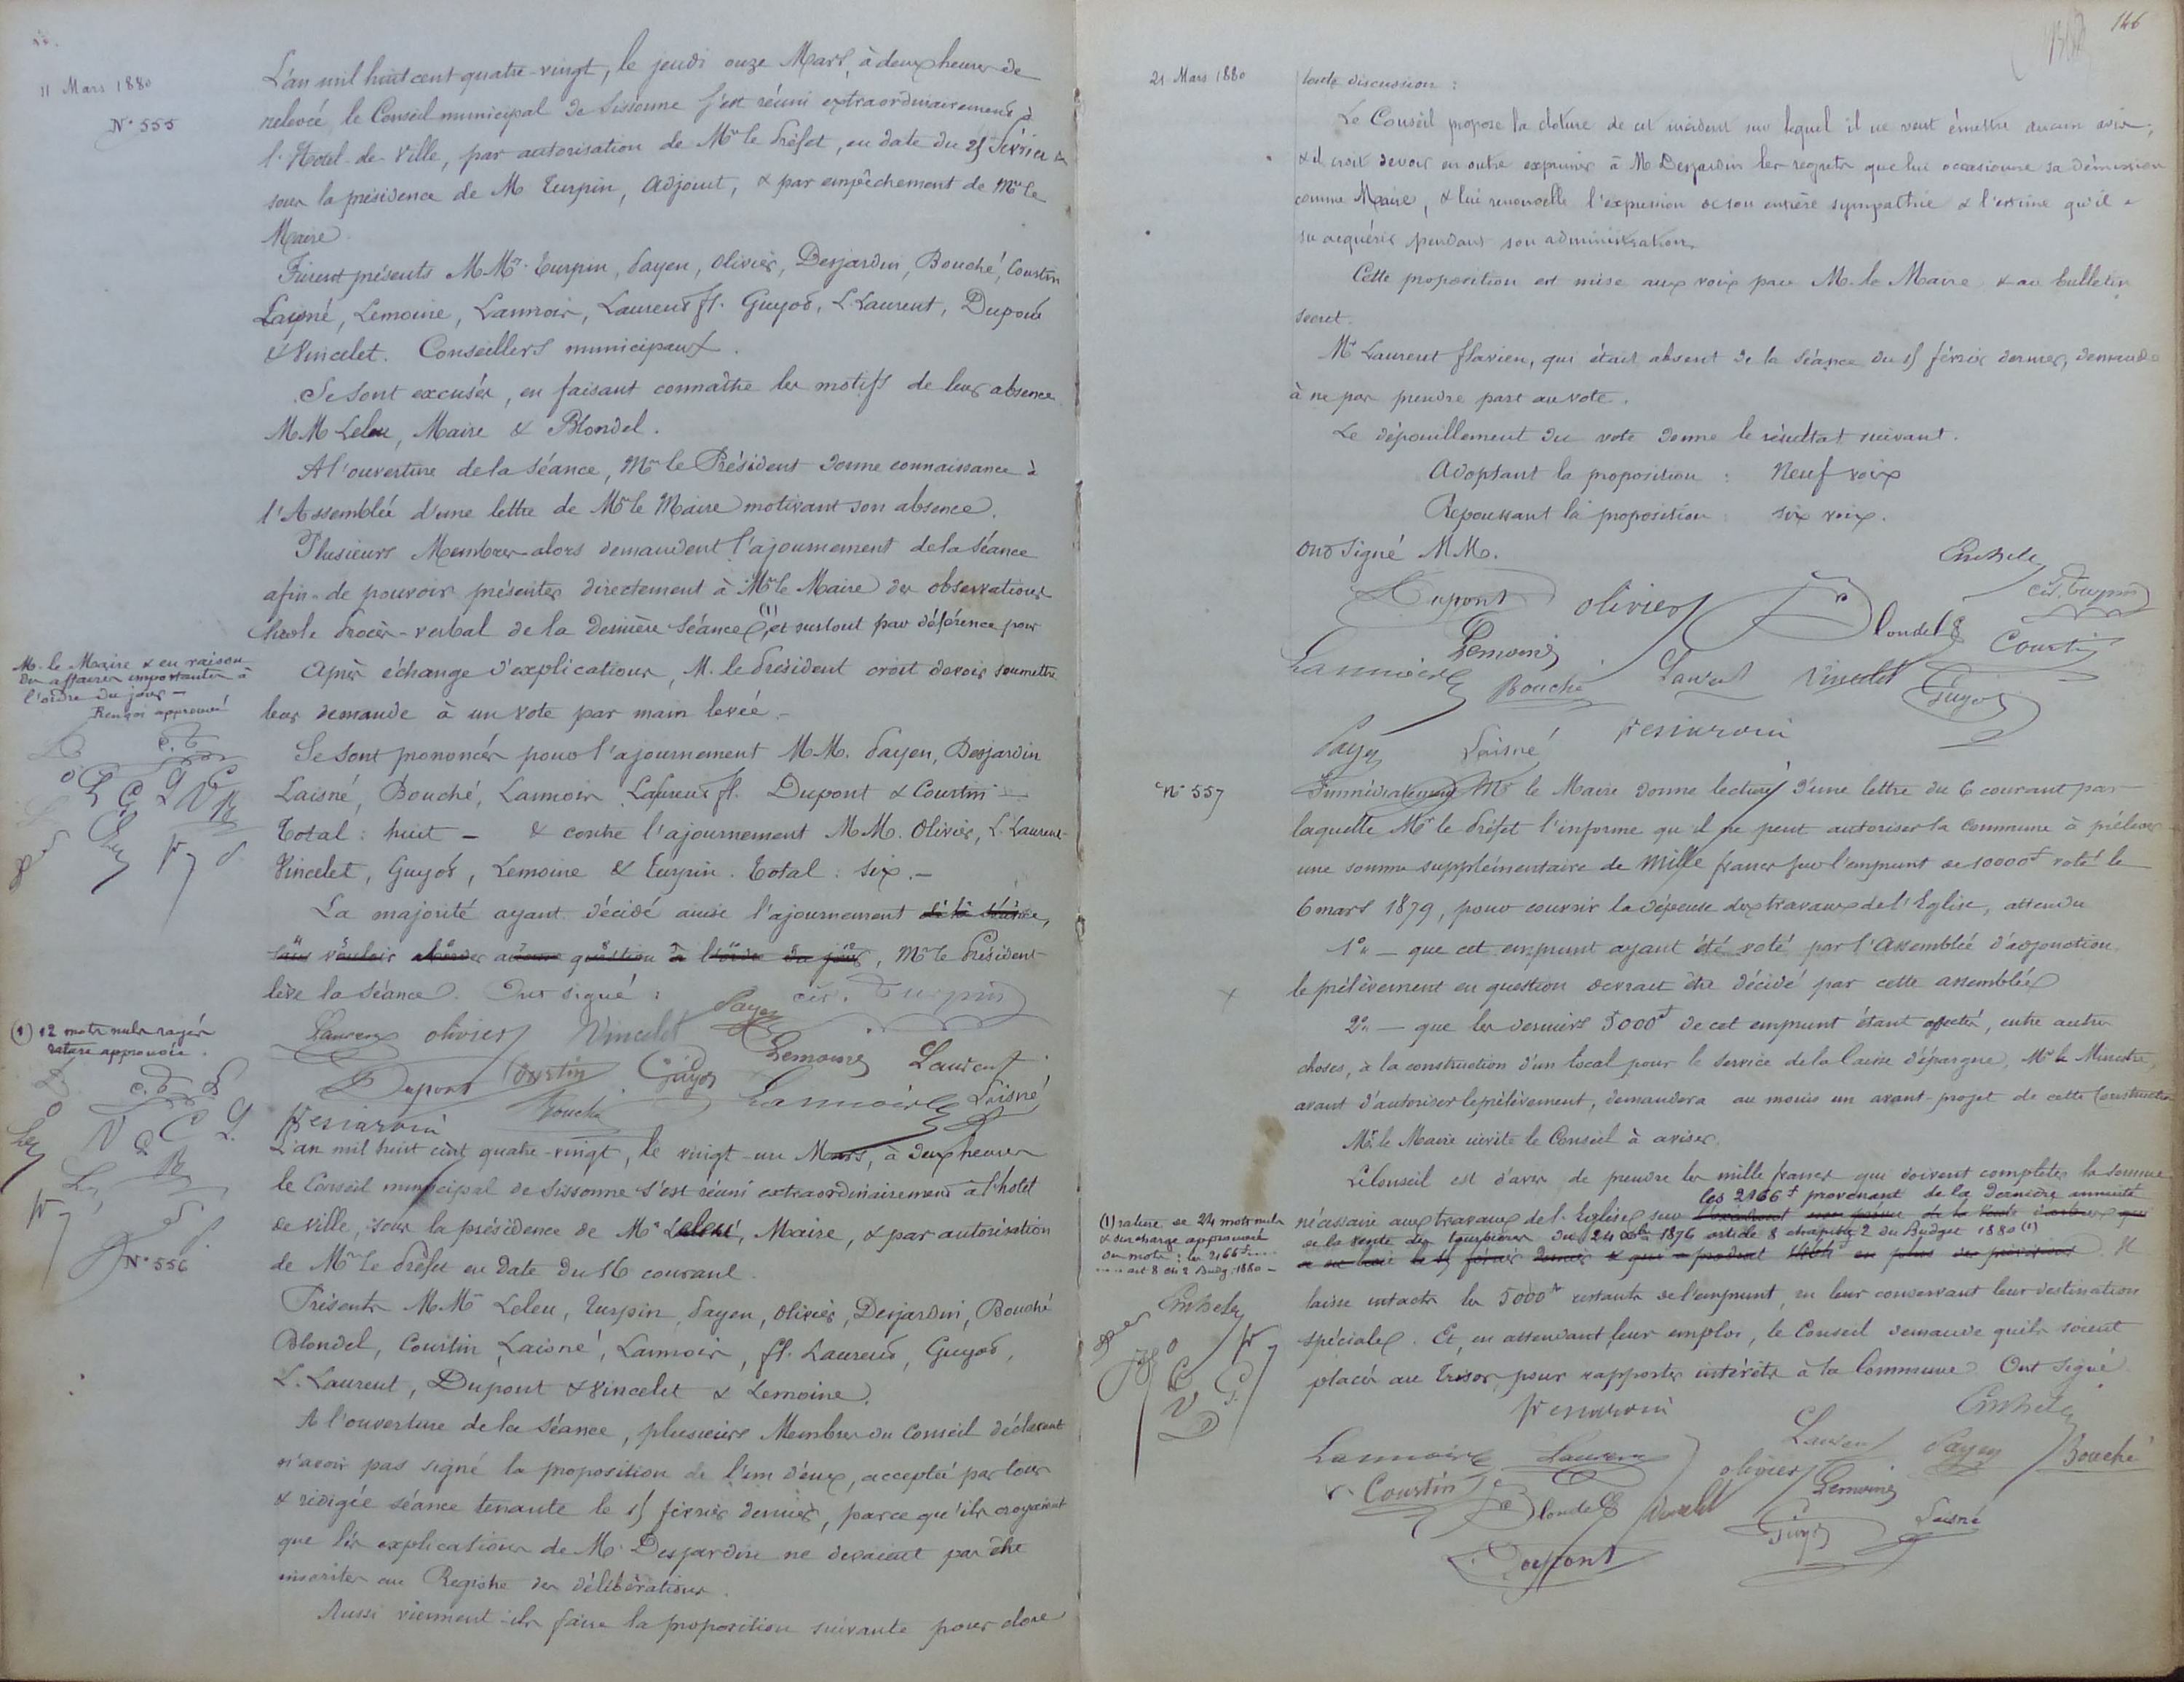 11 Mars 1880
N° 555
L'an mil huit cent quatre-vingt, le jeudi onze Mars, à deux heures de
relevée, le Conseil municipal de Sissonne s'est réuni extraordinairement à
l'Hotel-de-Ville, par autorisation de Mr le Préfet, en date du 25 Février
sous la présidence de M Turpin, Adjoint, & par empêchement de Mr le
Maire.
Furent présents MMrs Turpin, Payen, Olivier, Desjardin, Bouché, Courtin
Laisné, Lemoine, Lannois, Laurent fl. Guyot, L. Laurent, Dupont
& Vincelet. Conseillers municipaux.
Se sont excusés, en faisant connaître les motifs de leur absence
MM Leleu, Maire & Blondel.
A l'ouverture de la Séance, Mr le Président donne connaissance à
l'Assemblée d'une lettre de Mr le Maire motivant son absence.
Plusieurs Membres alors demandent l'ajournement de la Séance
afin de pouvoir présenter directement à Mr le Maire des observations
sur le Procès-verbal de la dernière séance, (1) et surtout par déférence pour
M. le Maire & en raison
des affaires importantes à
l'ordre du jour -
Renvoi approuvé
Après échange d'explications, M. le Président croit devoir soumettre
leur demande à un vote par main levée.
Se sont prononcés pour l'ajournement MM. Payen, Desjardin
Laisné, Bouché, Lannois, Laurent fl. Dupont & Courtin -
Total : huit - & contre l'ajournement MM. Olivier, L. Laurent
Vincelet, Guyot, Lemoine & Turpin. Total : six. -
La majorité ayant décidé ainsi l'ajournement de la séance,
sans vouloir aborder aucune question à l'ordre du jour, Mr le Président
lève la Séance. Ont signé :
(1) 12 mots nuls rayés
rature approuvée.
Payen cés. Turpin
Laurent olivier Vincelet Lemoine Laurent
Dupont Courtin Guyot Lannois Laisné
Desjardin Bouché
L'an mil huit cent quatre-vingt, le vingt-un Mars, à deux heures
le Conseil municipal de Sissonne s'est réuni extraordinairement à l'hotel
de ville, sous la présidence de Mr Leleu, Maire, & par autorisation
de Mr le Préfet en date du 16 courant.
N° 556
Présents MMrs Leleu, Turpin, Payen, Olivier, Desjardin, Bouché
Blondel, Courtin, Laisné, Lannois, fl. Laurent, Guyot,
L. Laurent, Dupont & Vincelet & Lemoine.
A l'ouverture de la Séance, plusieurs Membres du Conseil déclarent
n'avoir pas signé la proposition de l'un d'eux, acceptée par tous
& rédigée séance tenante le 15 février dernier, parce qu'ils croyaient
que les explications de M. Desjardin ne devaient pas être
inscrites au Registre des délibérations.
Aussi viennent-ils faire la proposition suivante pour clore
146
21 Mars 1880
toute discussion :
Le Conseil propose la clôture de cet incident sur lequel il ne veut émettre aucun avis,
& il croit devoir en outre exprimer à M Desjardin les regrets que lui occasionne sa démission
comme Maire, & lui renouvelle l'expression de son entière sympathie & l'estime qu'il a
su acquérir pendant son administration.
Cette proposition est mise aux voix par M. le Maire & au bulletin
secret.
Mr Laurent flavien, qui était absent de la Séance du 15 février dernier, demande
à ne pas prendre part au vote.
Le dépouillement du vote donne le résultat suivant.
Adoptant la proposition : Neuf voix
Repoussant la proposition : six voix.
Ont Signé MM.
Em Leleu
Dupont olivier Blondel cés. Turpin
Lannois Lemoine Bouché Laurent Vincelet Courtin
Guyot
Payen Laisné Desjardin
N° 557
Immédiatement Mr le Maire donne lecture d'une lettre du 6 courant par
laquelle Mr le Préfet l'informe qu'il ne peut autoriser la Commune à prélever
une somme supplémentaire de Mille francs sur l'emprunt de 10000f voté le
6 mars 1879, pour couvrir la dépense des travaux de l'Eglise, attendu
1° - que cet emprunt ayant été voté par l'Assemblée d'adjonction
le prélèvement en question devrait être décidé par cette assemblée
2° - que les derniers 5000f de cet emprunt étant affectés, entre autres
choses, à la construction d'un local pour le Service de la Caisse d'épargne, Mr le Ministre,
avant d'autoriser le prélèvement, demandera au moins un avant-projet de cette Construction
Mr le Maire invite le Conseil à aviser.
Le Conseil est d'avis de prendre les mille francs qui doivent compléter la somme
les 2166f provenant de la dernière annuité
nécessaire aux travaux de l'Eglise sur
de la vente des tourbières du 24 Xbre 1876 article 8 chapitre 2 du Budget 1880 (1)
Il
(1) rature de 24 mots nuls
& surcharge approuvant
les mots : les 2166f ....
.... art 8 ch 2 Budg. 1880 -
laisse intacts les 5000f restants de l'emprunt, en leur conservant leur destination
spéciale. Et, en attendant leur emploi, le Conseil demande qu'ils soient
placés au Trésor, pour rapporter intérêts à la Commune. Ont Signé
Em Leleu
Desjardin Em Leleu
Lannois Laurent Laurent Payen Bouché
Courtin Blondel Vincelet olivier Lemoine
Guyot Laisné
Dupont